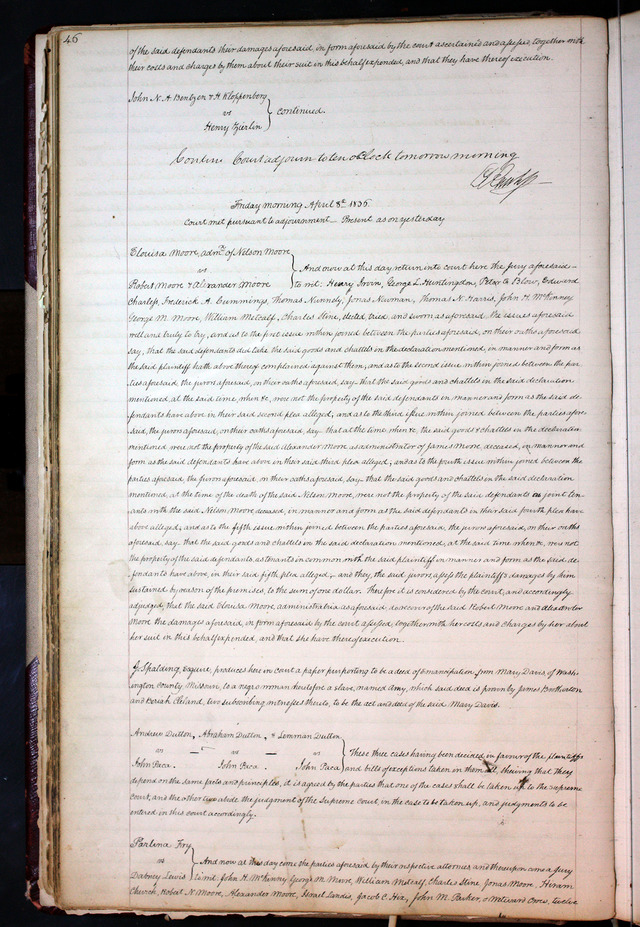 46
of the said defendants their damages aforesaid in form aforesaid by the court ascertained and assessed, together with
their costs and charges by them about their suit in this behalf expended, and that they have thereof execution.
John N. A. Bentzen & H. Kloppenborg
vs } Continued.
Henry Zierlin
Court adjourn to ten o'clock tomorrow morning
Friday morning April 8th 1836
Court met pursuant to adjournment Present as on yesterday
Elouisa Moore, admx. of Nelson Moore
vs } And now at this day return into court here the Jury aforesaid
Robert Moore & Alexander Moore to wit: Henry Irvin, George L. Huntingdon, Peter E Blow, Edward
Charless, Frederick A. Cummings, Thomas Nunnely, Jonas Newman, Thomas N. Harris, John H. McKinney
George M. Moore, William Metcalf, Charles Stine, elected, tried, and sworn as aforesaid, the issues aforesaid
well and truly to try, and as to the first issue within joined between the parties aforesaid, on their oaths aforesaid
say, that the said defendants did take the said goods and chattels in the declaration mentioned, in manner and form as
the said plaintiff hath above thereof complained against them; and as to the second issue within joined between the par-
ties aforesaid, the jurors aforesaid, on their oaths aforesaid, say that the said goods and chattels in the said declaration
mentioned, at the said time, when &c, were not the property of the said defendants in manner and form as the said de-
fendants have above in their said second plea alleged; and as to the third issue within joined between the parties afore-
said, the jurors aforesaid, on their oaths aforesaid, say that at the time, when &c. the said goods & chattels in the declaration
mentioned were not the property of the said Alexander Moore as administrator of James Moore, deceased, in manner and
form as the said defendants have above in their said third plea alleged; and as to the fourth issue within joined between the
parties aforesaid, the jurors aforesaid, on their oaths aforesaid, say that the said goods and chattels in the said declaration
mentioned, at the time of the death of the said Nelson Moore, were not the property of the said defendants as joint ten-
ants with the said Nelson Moore deceased, in manner and form as the said defendants in their said fourth plea have
above alleged; and as to the fifth issue within joined between the parties aforesaid, the jurors aforesaid, on their oaths
aforesaid, say that the said goods and chattels in the said declaration mentioned, at the said time when &c, were not
the property of the said defendants, as tenants in common with the said plaintiff in manner and form as the said de-
fendants have above, in their said fifth plea alleged; and they, the said jurors, assess the plaintiff's damages by him
sustained by reason of the premises, to the sum of one dollar. Therefore it is considered by the court, and accordingly
adjudged, that the said Elouisa Moore, administratrix as aforesaid, do recover of the said Robert Moore and Alexander
Moore the damages aforesaid, in form aforesaid by the court assessed, together with her costs and charges by her about
her suit in this behalf expended, and that she have thereof execution.
J. Spalding, Esquire, produces here in court a paper purporting to be a deed of Emancipation from Mary Davis, of Wash-
ington County, Missouri, to a negro woman heretofore a slave, named Amy, which said deed is proven by James Brotherton
and Beriah Cleland, two subscribing witnesses thereto, to be the act and deed of the said Mary Davis.
Andrew Dutton, Abraham Dutton, & Lemman Dutton
vs - vs - vs } These three cases having been decided in favour of the plaintiffs
John Paca. John Paca. John Paca and bills of exceptions taken in them all, shewing that they
depend on the same facts and principles, it is agreed by the parties that one of the cases shall be taken up to the supreme
court, and the other two abide the judgment of the Supreme Court, in the case to be taken up, and judgments to be
entered in this court accordingly.
Parlina Fry
vs } And now at this day come the parties aforesaid by their respective attornies, and thereupon came a Jury
Dabney Lewis to wit. John H. McKinny George M. Moore, William Metcalf, Charles Stine Jonas Moore, Hiram
Church, Robert N. Moore, Alexander Moore, Israel Landis, Jacob C. Hex, John M. Parker, Crow, twelve